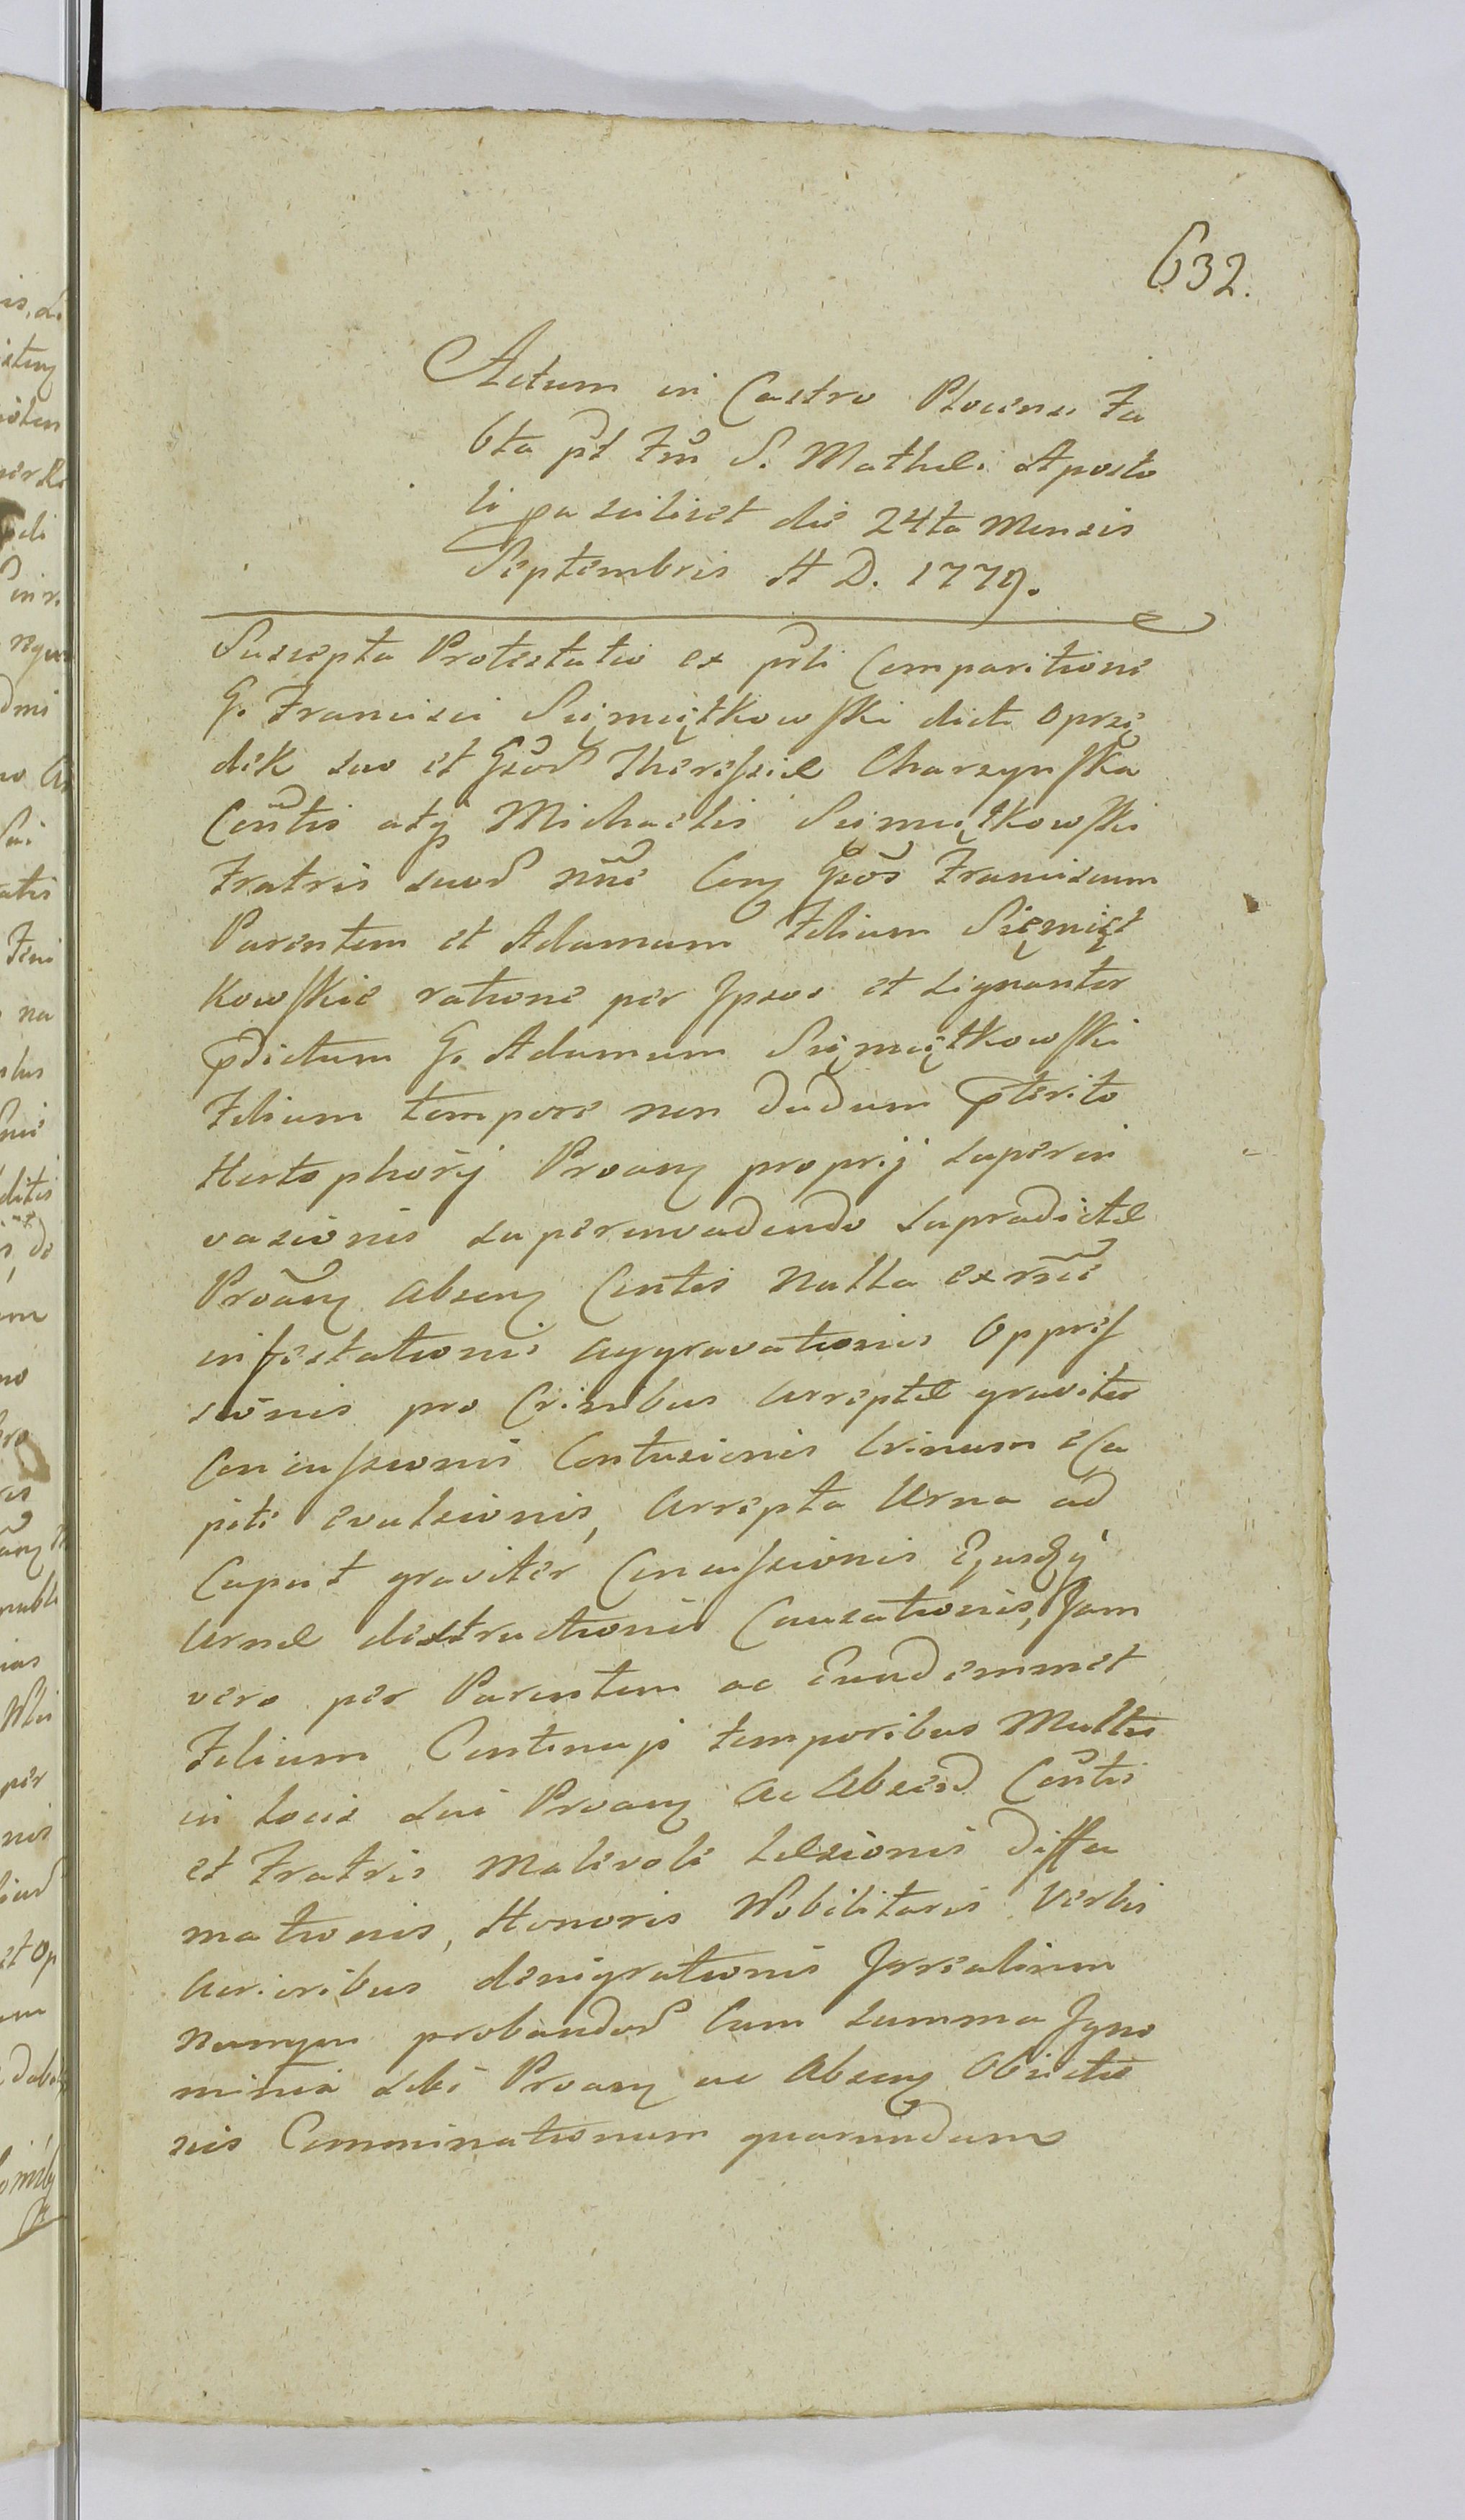 632.
Actum in Castro Plocensi Sa
bto pt Fm S. Mathei Aposto
li pa scilicet die 24ta Mensis
Septembris A D. 1779.
Suscepta Protestatio ex prli Comparitione
G. Francisci Siemiątkowski dicti Oprzę
dek suo et Gsor Theressiæ Charzynska
Contis atq Michaelis Siemiątkowski
Fratris suor nne Con Gsos Franciscum
Parentem et Adamum Filium Siemięt
kowskie ratione per Ipsos et signanter
pdictum G. Adamum Siemiątkowski
Filium tempore non dudum pterito
Hortophorij Proan proprij superin
vasionis superinvadendo supradictæ
Proan absen Contis Nulla ex rne
infestationis aggravationis Oppres
sionis pro Crinibus Arreptæ graviter
Concussionis Contusionis Crinum e Ca
pite evulsionis, Arrepta Urna ad
Caput graviter Concussionis Ejusdq
Urnæ destructionis Causationis, Jam
vero per Parentem ac Eundemmet
Filium Continujs temporibus Multis
in Locis sui Proan ac Absen Contis
et Fratris Malevole Læsionis Diffa
mationis, Honoris Nobilitaris Verbis
Acrioribus denigrationis Irrealium
Nunquam probandor Cum summa Igno
minia sibi Proan ac Absen Obiectio
nis Comminationum quarundam